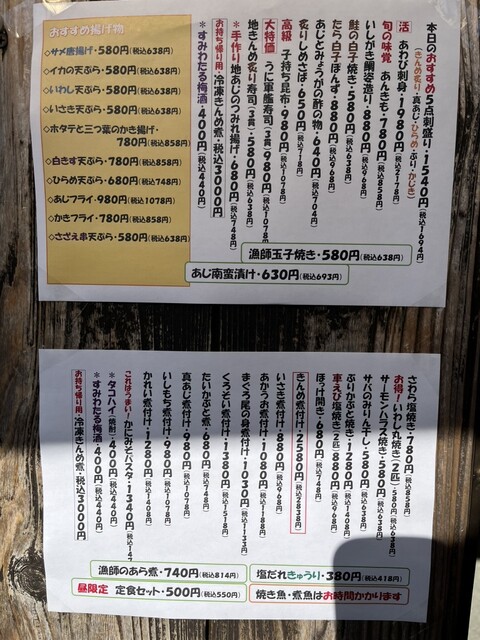 本日のおすすめ5点刺盛り・1540円(税込1694円)
(きんめ炙り・真あじ・ひらめ・ぶり・かじき)
活 あわび刺身・1980円(税込2178円)
旬の味覚 あんきも・780円(税込858円)
いしがき鯛姿造り・880円(税込968円)
鮭の白子焼き・580円(税込638円)
たら白子ぽんず・880円(税込968円)
あじとみょうがの酢の物・640円(税込704円)
炙りしめさば・650円(税込718円)
高級 子持ち昆布・980円(税込1078円)
大特価 うに軍艦寿司(3貫)980円(税込1078円)
地きんめ炙り寿司(3貫)・580円(税込638円)
*手作り地あじのつみれ揚げ・680円(税込748円)
お持ち帰り用・冷凍きんめ煮・税込3000円
*すみわたる梅酒・400円(税込440円)
漁師玉子焼き・580円(税込638円)
あじ南蛮漬け・630円(税込693円)
おすすめ揚げ物
◇サメ唐揚げ・580円(税込638円)
◇イカの天ぷら・580円(税込638円)
◇いわし天ぷら・580円(税込638円)
◇いさき天ぷら・580円(税込638円)
◇ホタテと三つ葉のかき揚げ・
780円(税込858円)
◇白きす天ぷら・780円(税込858円)
◇ひらめ天ぷら・680円(税込748円)
◇あじフライ・980円(税込1078円)
◇かきフライ・780円(税込858円)
◇さざえ串天ぷら・580円(税込638円)
さわら塩焼き・780円(税込858円)
お得!いわし丸焼き(2匹)580円(税込638円)
サーモンハラス焼き・580円(税込638円)
サバのみりん干し・580円(税込638円)
ぶりかぶと焼き・1280円(税込1408円)
車えび塩焼き(2匹)880円(税込968円)
ほっけ開き・680円(税込748円)
きんめ煮付け・2580円(税込2838円)
いさき煮付け・880円(税込968円)
あかうお煮付け・1080円(税込1188円)
まぐろ尾の身煮付け・1030円(税込1133円)
くろそい煮付け・1380円(税込1518円)
たいかぶと煮・680円(税込748円)
真あじ煮付け・980円(税込1078円)
いしもち煮付け・980円(税込1078円)
かれい煮付け・1280円(税込1408円)
これはうまい!かにみそパスタ・1340円(税込147
*タコハイ(焼酎)・400円(税込440円)
*すみわたる梅酒・400円(税込440円)
お持ち帰り用・冷凍きんめ煮・税込3000円
漁師のあら煮・740円(税込814円)
塩だれきゅうり・380円(税込418円)
昼限定 定食セット・500円(税込550円)
焼き魚・煮魚はお時間かかります